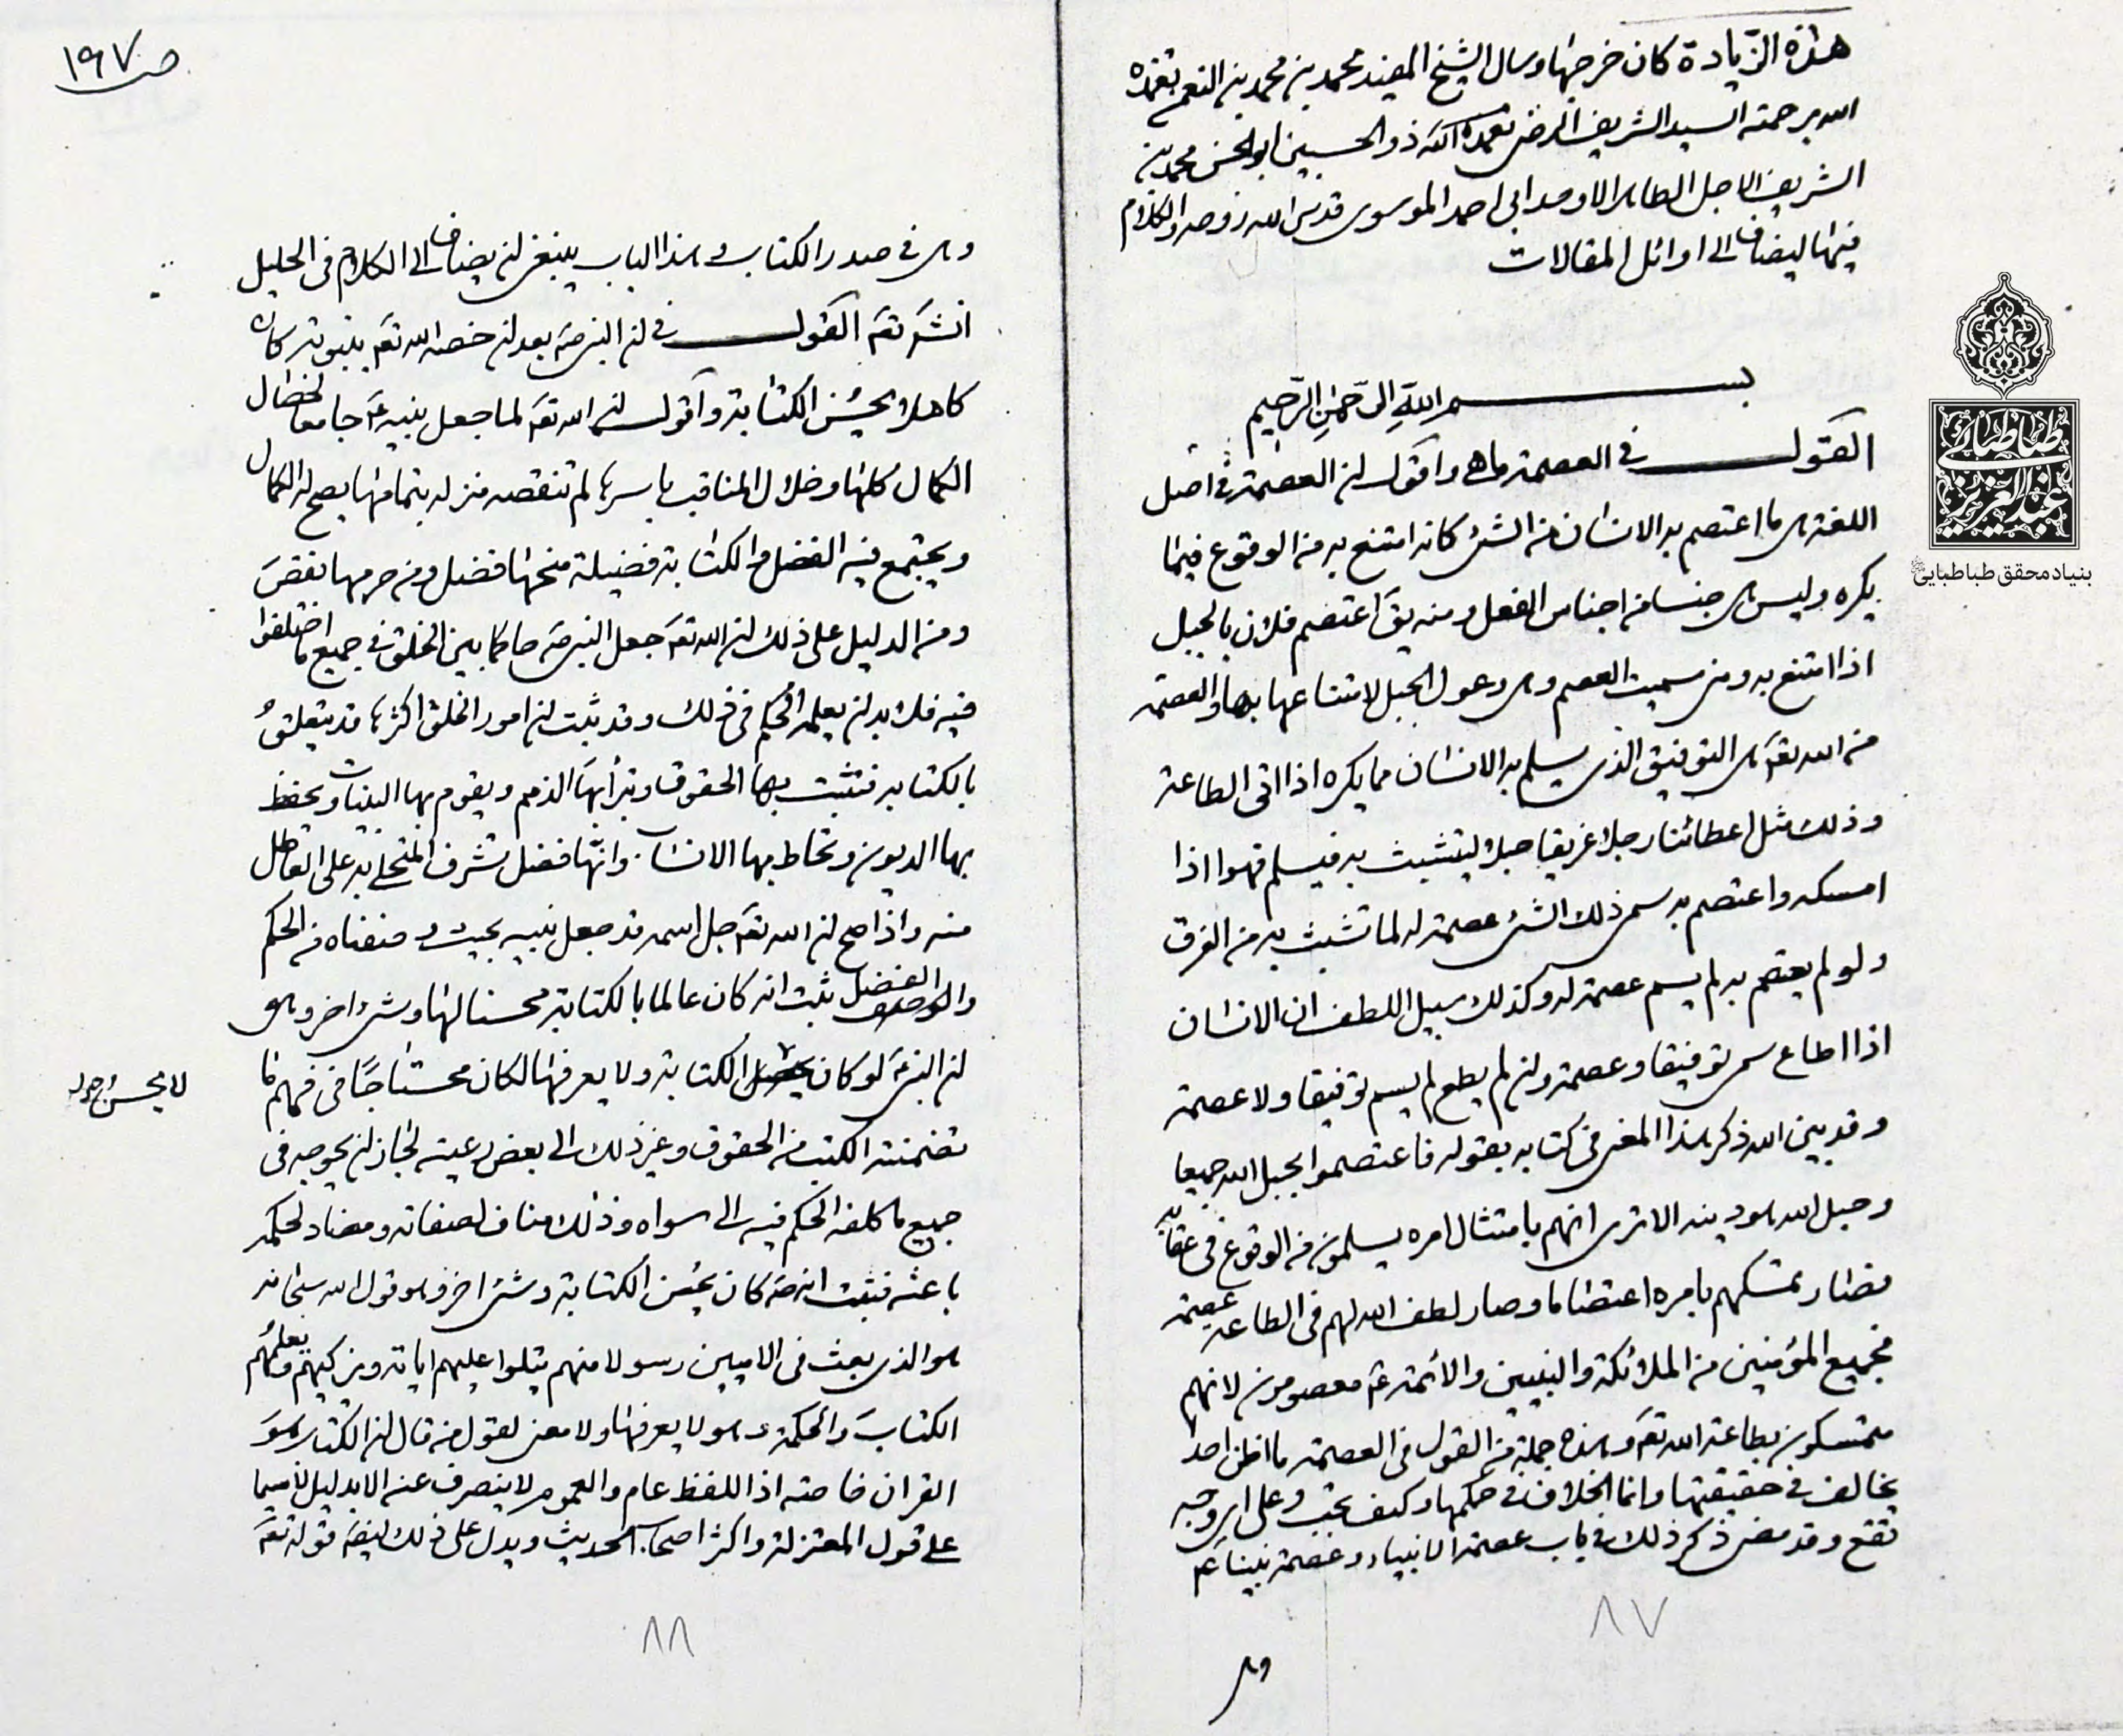 هذه الزيادة كان خرجها وسال الشيخ المفيد محمد بن محمد بن النعم تغمده
الله برحمته السيد الشريف الرضى تغمده الله ذو الحسبين ابو الحسن محمد بن
الشريف الاجل الطاهر الاوحد ابى احمد الموسوى قدس الله روحه والكلام
فيها ليضاف الى اوائل المقالات
بسم الله الرحمن الرحيم
القول فى العصمة ما هى واقول ان العصمة فى اصل
اللغة هى ما اعتصم به الانسان من الشئ كانه امتنع به من الوقوع فيما
يكره وليس هى جنسا من اجناس الفعل ومنه يق اعتصم فلان بالجبل
اذا امتنع به ومنه سميت العصم وهى وعول الجبل لامتناعها بها والعصمة
من الله تعه هى التوفيق الذى يسلم به الانسان مما يكره اذا اتى الطاعة
وذلك مثل اعطائنا رجلا غريقا حبلا ليتشبث به فيسلم فهو اذا
امسكه واعتصم به سمى ذلك الشئ عصمة له لما تشبث به من الغرق
ولو لم يعتصم به لم يسم عصمة له وكذلك سبيل اللطف ان الانسان
اذا اطاع سمى توفيقا وعصمة وان لم يطع لم يسم توفيقا ولا عصمة
وقد بين الله ذكر هذا المعنى فى كتابه بقوله فاعتصموا بحبل الله جميعا
وحبل الله هو دينه الا ترى انهم بامتثال امره يسلمون من الوقوع فى عقابه
فصار تمسكهم بامره اعتصاما وصار لطف الله لهم فى الطاعة عصمة
فجميع المؤمنين من الملائكة والنبيين والائمة ع معصومون لانهم
متمسكون بطاعة الله تعه وهذه جملة من القول فى العصمة ما اظن احدا
يخالف فى حقيقتها وانما الخلاف فى حكمها وكيف تجب وعلى اى وجه
تقع وقد مضى ذكر ذلك فى باب عصمة الانبياء وعصمة نبينا عم
٨٧
وهى
ص ١٩٧
وهى فى صدر الكتاب وهذا الباب ينبغى ان يضاف الى الكلام فى الجليل
انشه تعه القول فى ان النبى ص بعد ان خصه الله تعه بنبوته كان
كاملا يحسن الكتابة واقول ان الله تعه لما جعل نبيه ع جامعا لخصال
الكمال كلها وخلال المناقب باسرها لم تنقصه منزله بتمامها يصح له الكمال
ويجتمع فيه الفضل والكتابة فضيلة منحها فضل ومن حرمها نقص
ومن الدليل على ذلك ان الله تعه جعل النبى ص حاكما بين الخلق فى جميع ما اختلفوا
فيه فلا بد ان يعلمه الحكم فى ذلك وقد ثبت ان امور الخلق اكثرها قد يتعلق
بالكتابه فتثبت بها الحقوق وتبرأ بها الذمم ويقوم بها البينات ويحفظ
بها الديون وتحاط بها الانساب وانها فضل تشرف المتحلى به على العاطل
منه واذا صح ان الله تعه جل اسمه قد جعل نبيه بحيث وصفناه من الحكم
والفضل ثبت انه كان عالما بالكتابة محسنا لها وشئ اخر وهو
ان النبى ع لو كان لا يحسن الكتابة ولا يعرفها لكان محتاجا فى فهم ما
تضمنته الكتب من الحقوق وغير ذلك الى بعض رعيته لجاز ان يحوجه فى
جميع ما كلفه الحكم فيه الى سواه وذلك مناف لصفاته ومضاد لحكمة
باعثه فثبت انه ص كان يحسن الكتابة وشئ اخر وهو قول الله سبحانه
هو الذى بعث فى الاميين رسولا منهم يتلوا عليهم اياته ويزكيهم ويعلمهم
الكتاب والحكمة وهو لا يعرفها ولا معنى لقول من قال ان الكتاب هو
القران خاصة اذ اللفظ عام والعموم لا ينصرف عنه الا بدليل لا سيما
على قول المعتزلة واكثر اصحاب الحديث ويدل على ذلك ايضه قوله تعه
٨٨
لا يحسن
بنیاد محقق طباطبایی